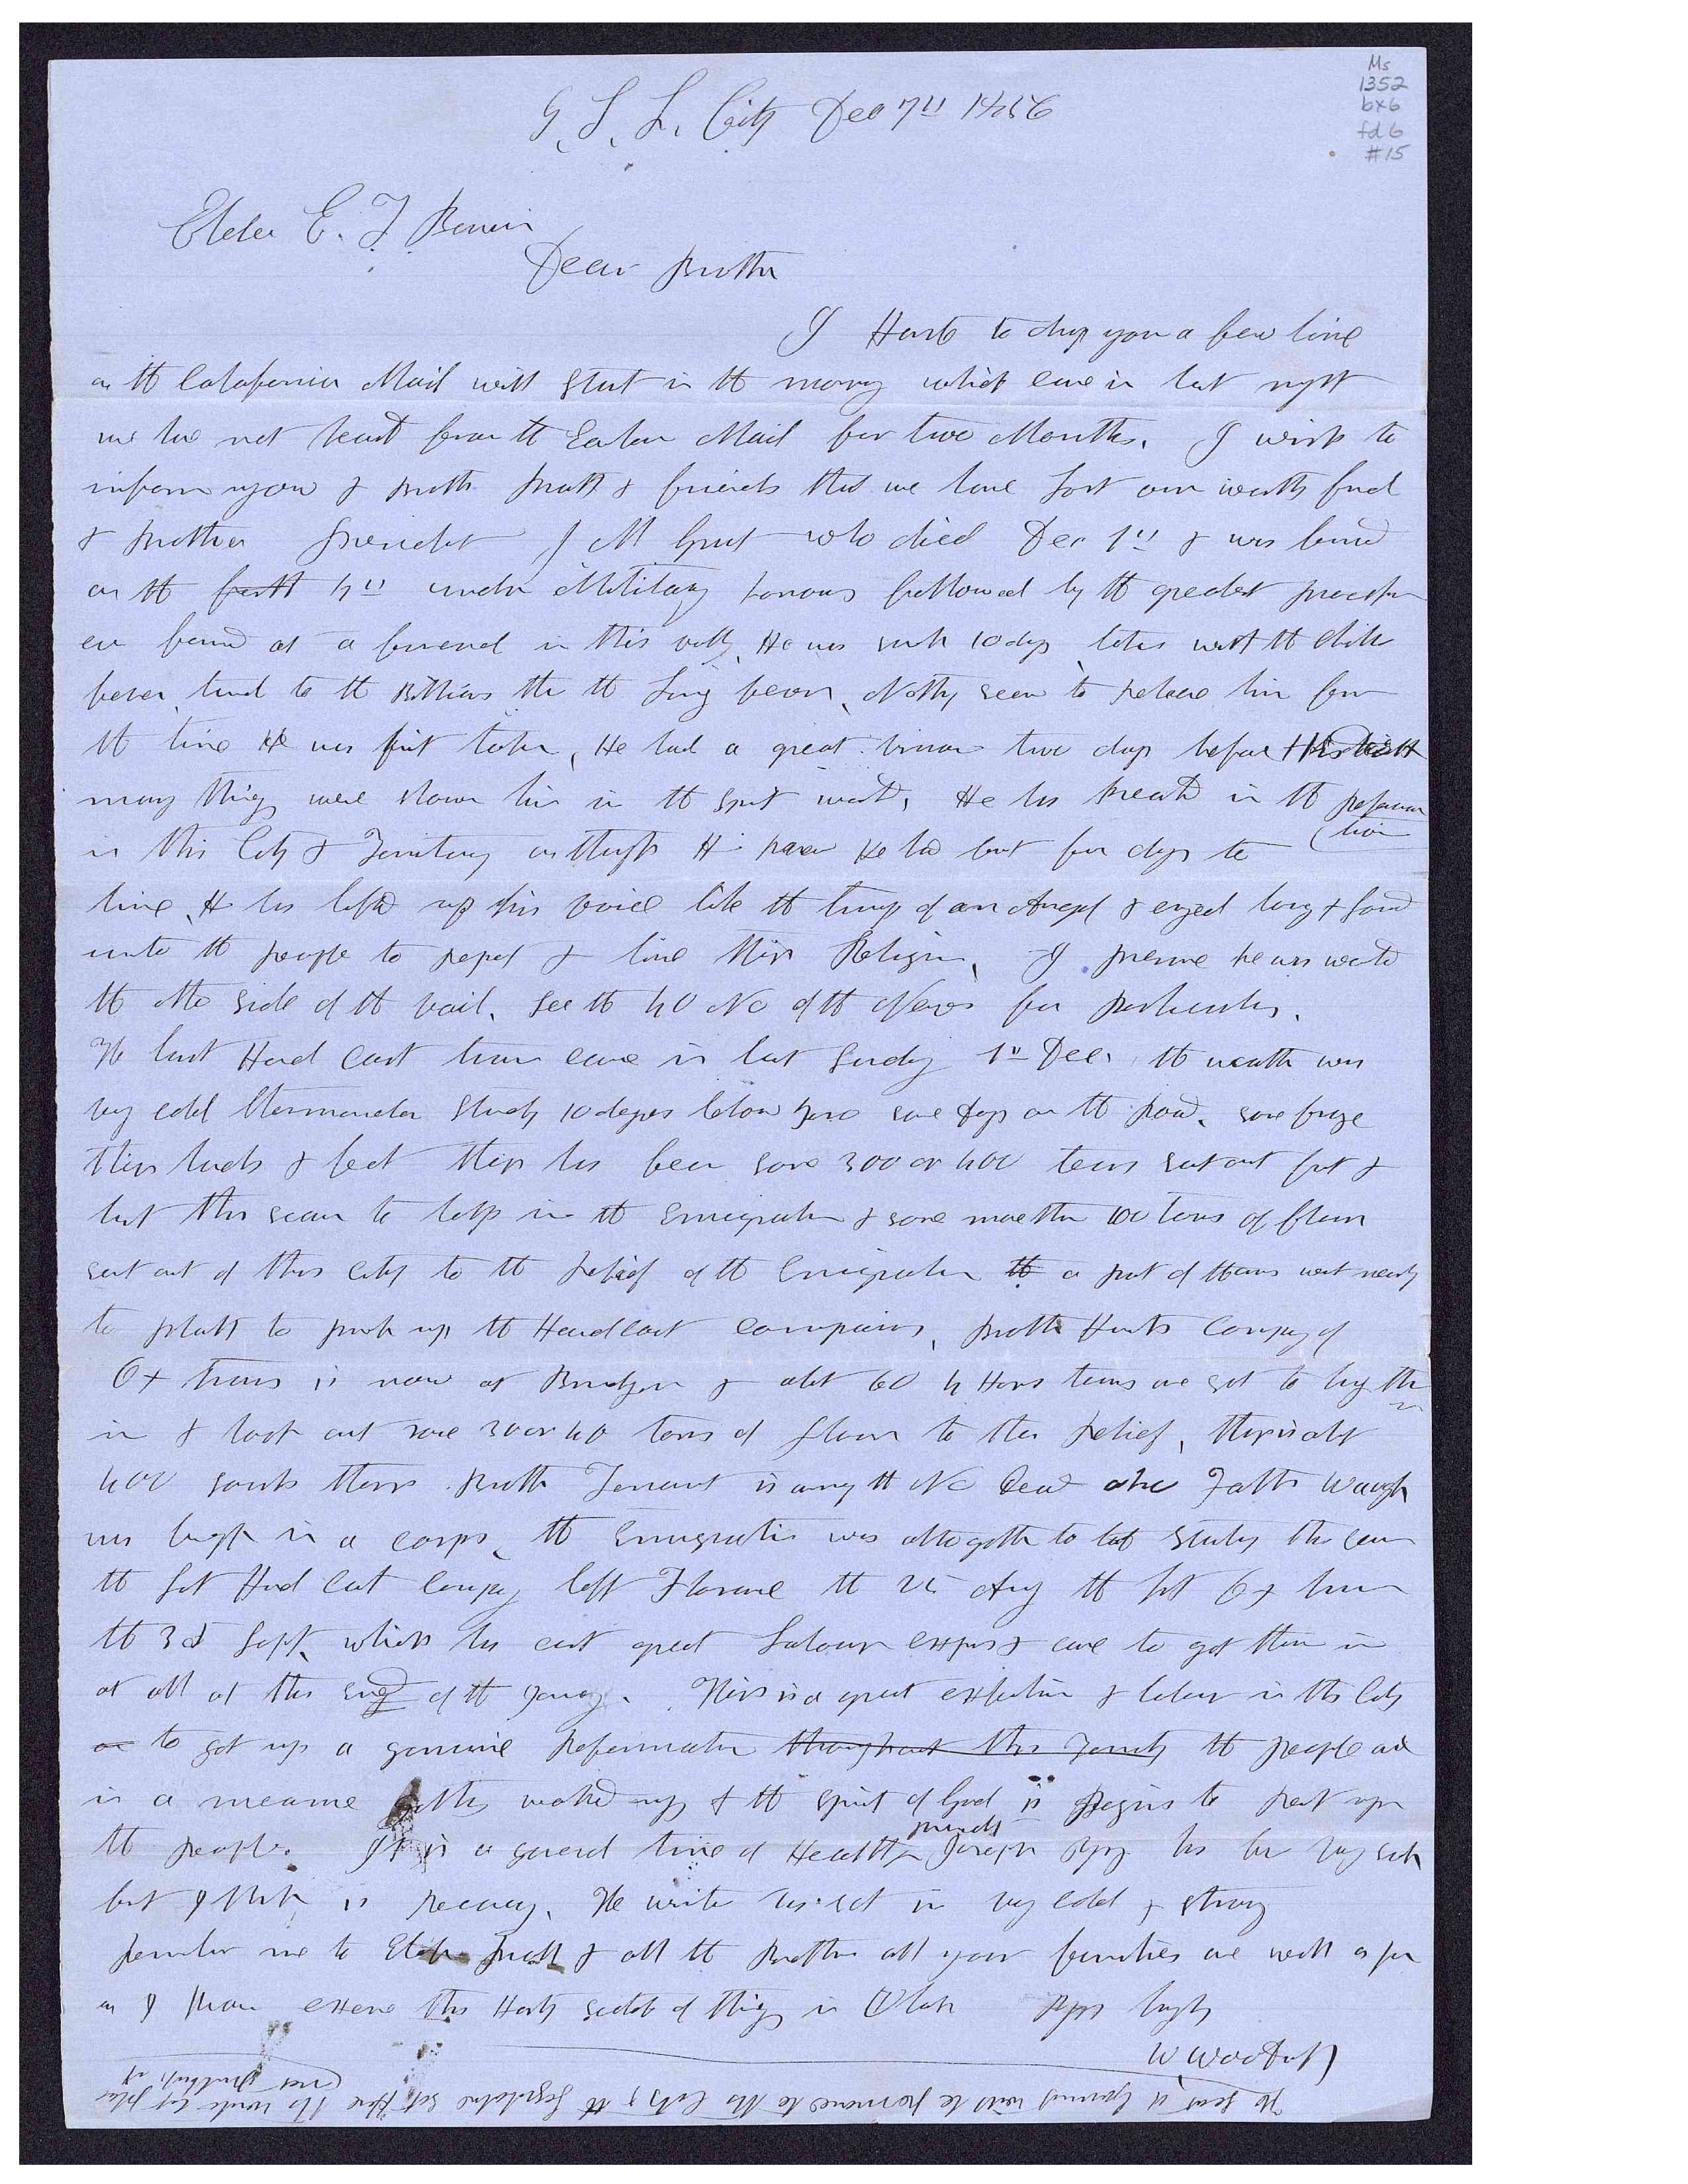 Ms
1352
bx6
fd 6
#15
G. S. L. City Dec 7th 1856
Elder E. T. Benson
Dear Brother
I Haste to drop you a few line
as the Calafornia Mail will Start in the morng which came in last night
we have not heard from the Eastern Mail for two Months. I wish to
inform you & Broth Pratt & friends that we have lost our worthy frnd
& Brother Presidet J M Grant who died Dec 1st & was buried
on the fourth 4th under Military honours followed by the greatest procession
ever found at a funeral in this vally, He was sick 10 days taken with the chills
fever, turnd to the Billious then the Lung fever, Nothg seem to releave him from
the time He was first taken, He had a great vision two days before His death
many things were shown him in the Spirit world, He has preachd in the Reforma
(tion
in this City & Territory as though He knew He had but few days to
live, He has lifted up his voice like the trump of an Angel & cryed long & loud
unto the people to repent & live their Religion, I presume he was wanted
the other side of the vail. See the 40 No of the News for particulars.
The last Hand Cart train came in last Sunday 1st Dec. the weather was
very cold thermometer Standg 10 degrees below zero some days on the road, some froze
their hands & feet their has been some 300 or 400 teams sent out first &
last this season to help in the Emigration & some more then 100 tons of flour
sent out of this City to the relief of the Emigration the a part of teams went nearly
to platt to pick up the Handcart companies, Broth Hunts Compay of
Ox trains is now at Bridger & abt 60 4 Hors teams are got to brig them
in & took out some 30 or 40 tons of flour to their relief, their is abt
400 souls there. Broth Tennant is among the No Dead also Father Waugh
was brght in a corps, the Emigratin was altogether to late starting this season
the last Hand Cart Compay left Florance the 25 Aug the last Ox train
the 3d Sept, which has cost great Labour expens & care to get them in
at all at this End of the Journy. Their is a great exhertion & labour in this City
on to get up a genuine Reformation throughout this Territy the people are
in a measure gettig waked up & the Spirit of God is Begins to rest upon
the people. It is a general time of Health, Presidt Joseph Yong has been very sick
but I think is recovry. The winter has set in very cold & strong
Remember me to Elder Pratt & all the Brethren all your families are well as far
as I know excuse this Hasty sketch of things in Utah Yours truly
W Woodruff
The seat of Goverment will be removed to this City & the Legislature sit Here this winter but please
not publish it